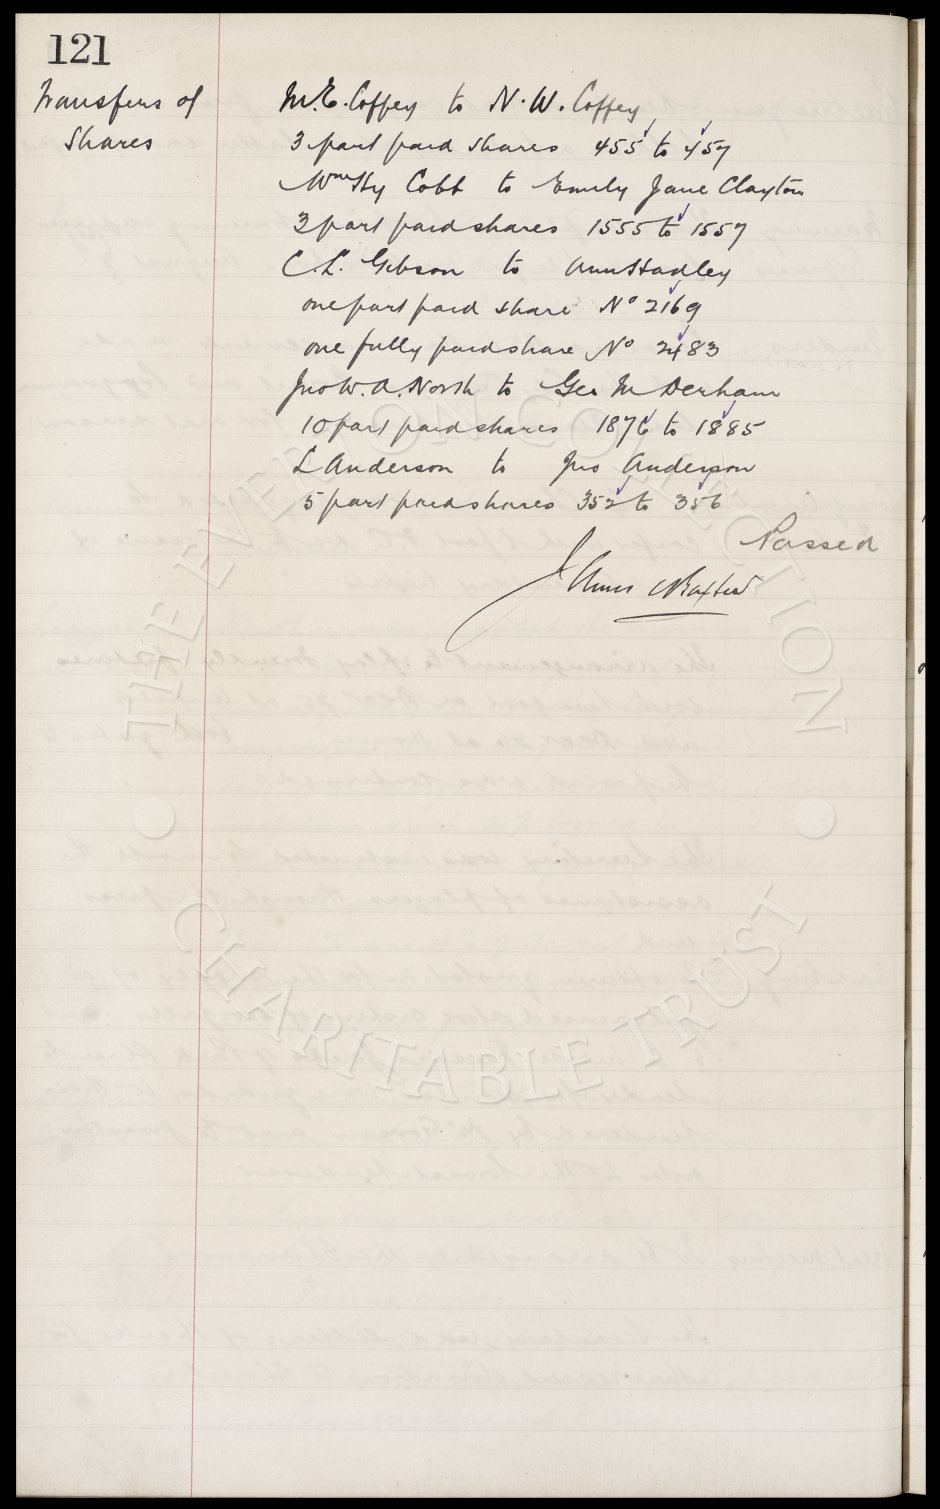 121
Transfers of
Shares
M. E. Coffey to N. W. Coffey
3 part paid shares 455 to 457
Wm Hy Cobb to Emily Jane Clayton
3 part paid shares 1555 to 1557
C. L. Gibson to Ann Hadley
one part paid share No 2169
one fully paid share No 2483
Jno W. A. North to Geo M Derham
10 part paid shares 1876 to 1885
L Anderson to Jno Anderson
5 part paid shares 352 to 356
Passed
James Baxter
THE EVERTON COLLECTION
CHARITABLE TRUST